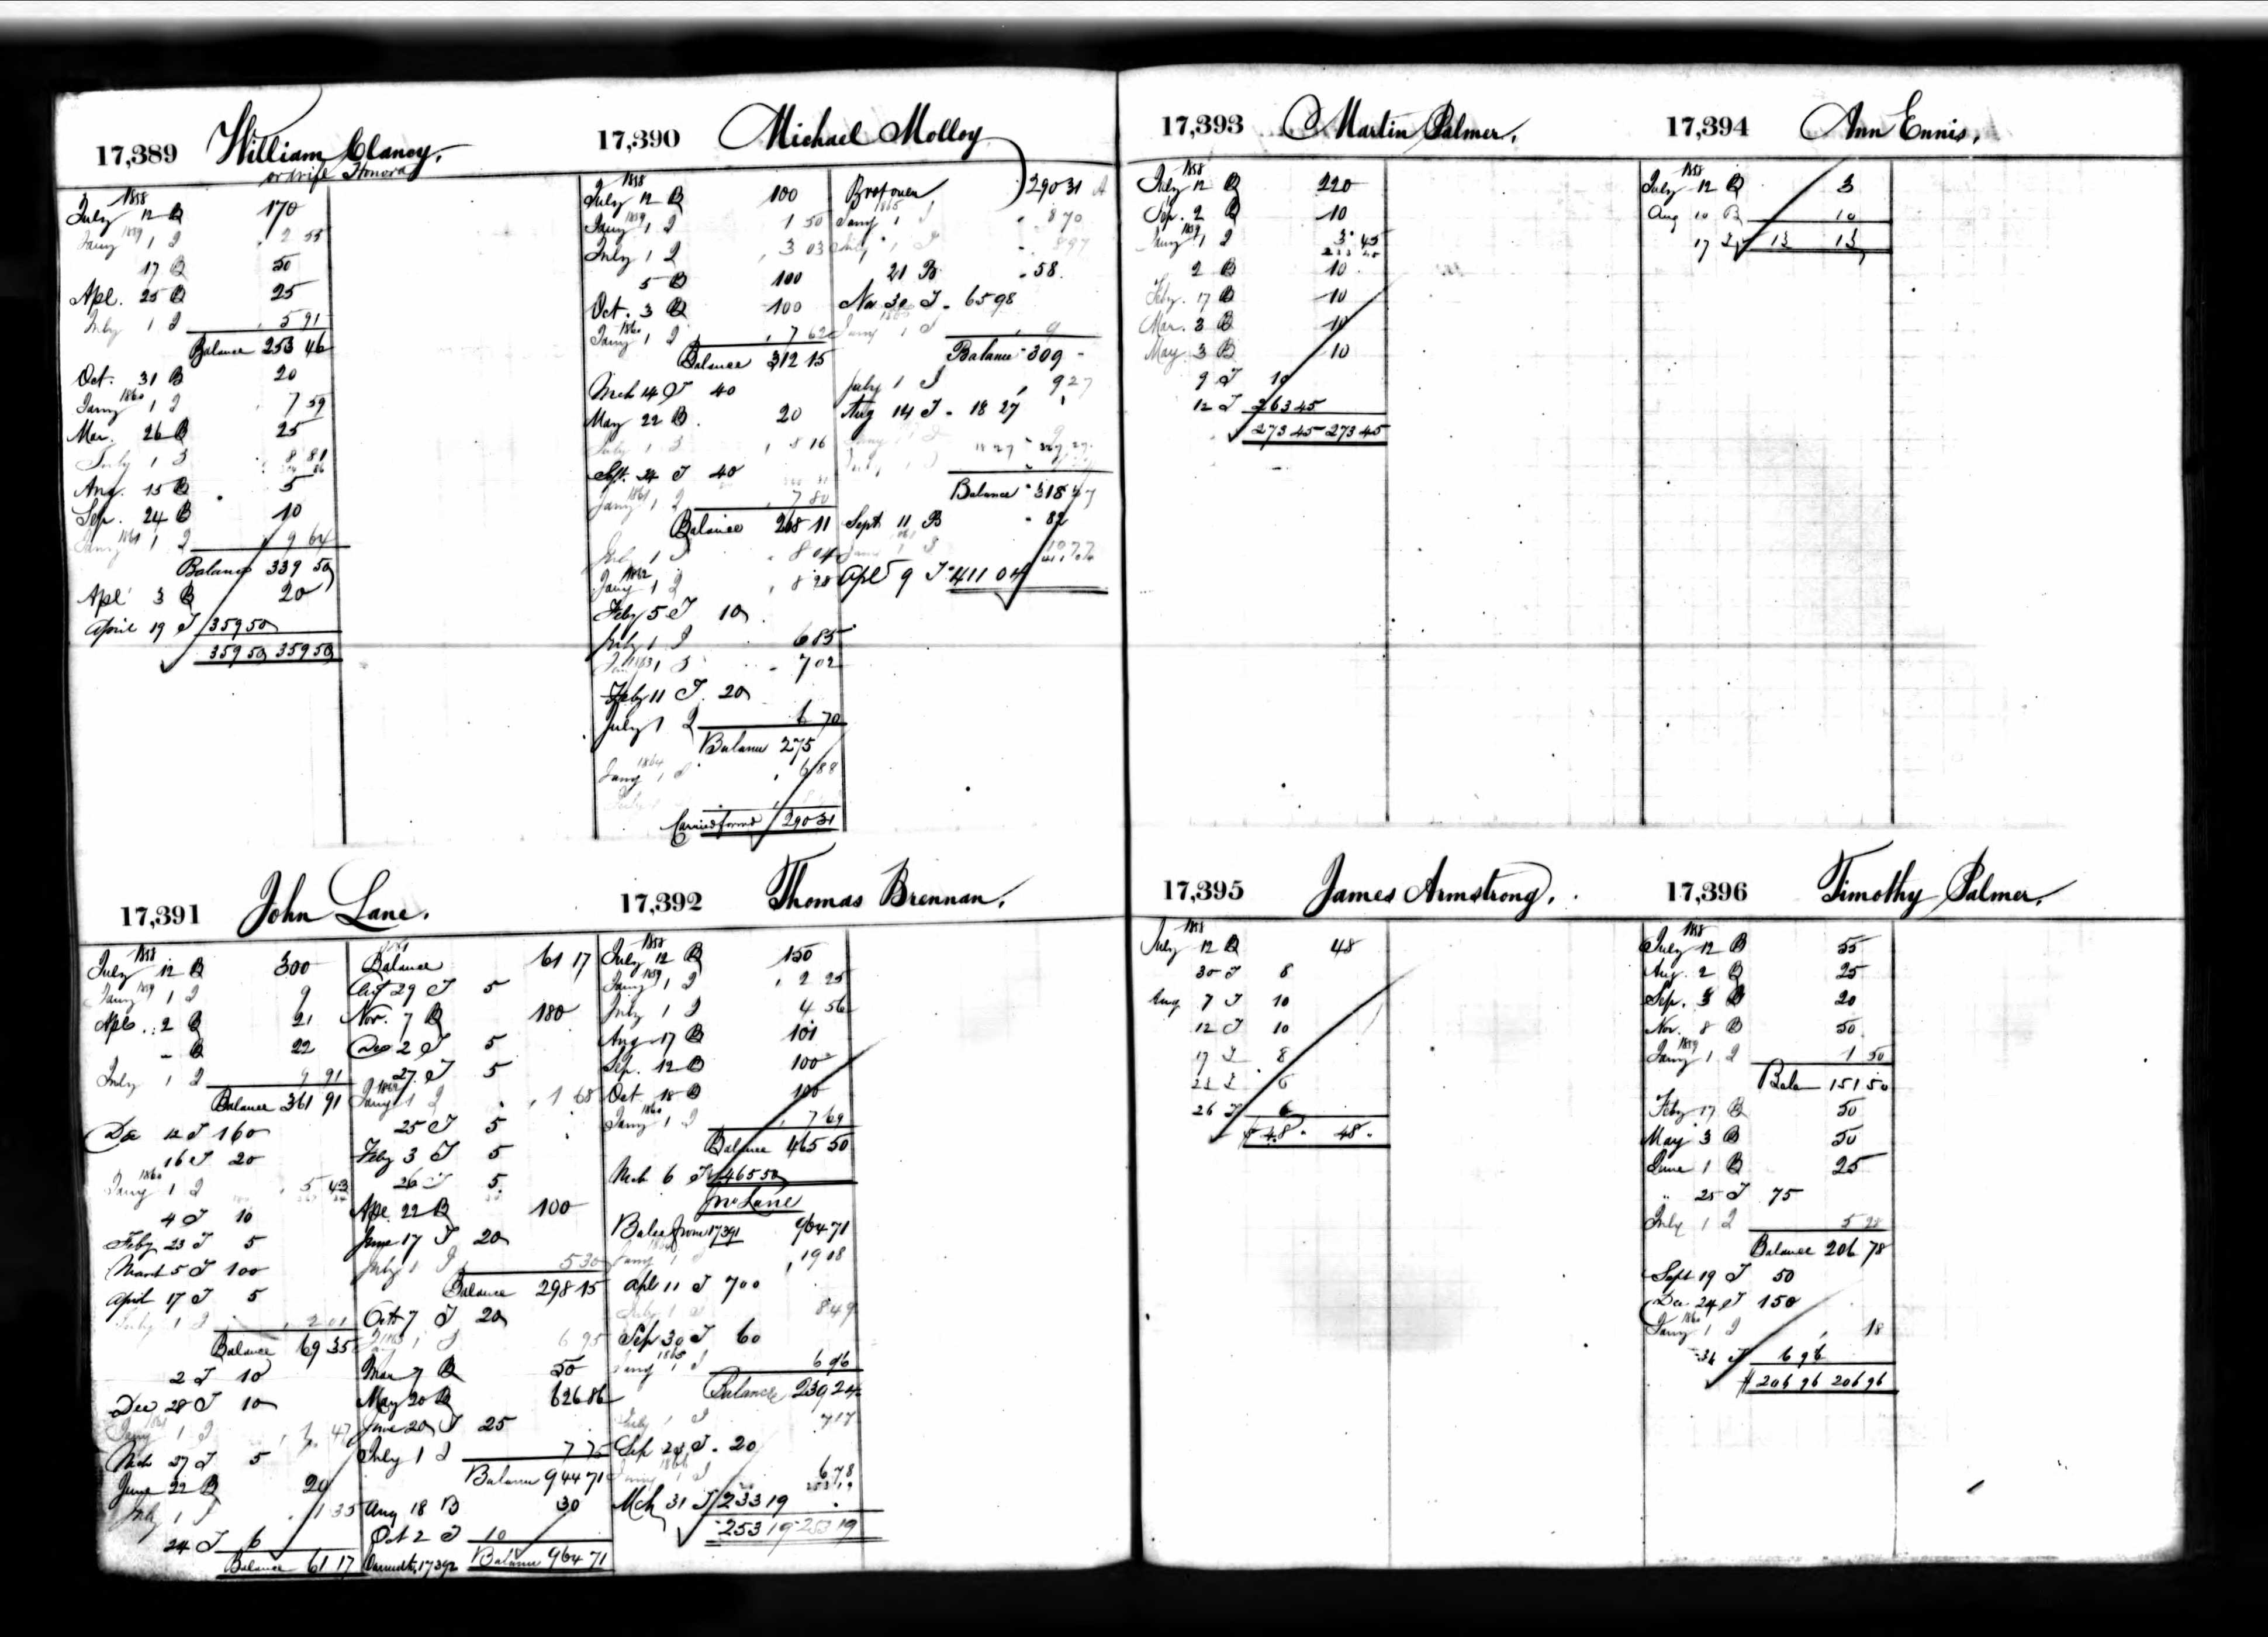 17,389 William Clancy.
or wife Honora
1858
July 12 B 170
Jany 1859 1 2 2 55
17 B 50
Apl. 25 B 25
July 1 2 5 91
Balance 253 46
Oct. 31 B 20
Jany 1860 1 2 7 59
Mar. 26 B 25
July 1 2 8 81
Aug. 15 B 5
Sep. 24 B 10
Jany 1861 1 2 9 64
Balance 339 50
Apl 3 B 20
April 19 T 359 50
359 50 359 50
17,390 Michael Molloy
1858
July 12 B 100
Jany 1859 1 2 1 50
July 1 2 3 03
5 B 100
Oct. 3 B 100
Jany 1860 1 2 7 62
Balance 312 15
Mch 14 T 40
May 22 B 20
July 1 2 8 16
Sept. 24 T 40
Jany 1861 1 2 7 80
Balance 268 11
July 1 2 8 04
Jany 1862 1 2 8 28
Feby 5 T 10
July 1 2 6 85
Jany 1863 1 2 7 02
Feby 11 T 20
July 1 2 6 70
Balance 275
Jany 1864 1 2 6 88
July
Carried forwd 290 31
Brot over 290 31
Jany 1865 1 2 8 70
July 1 2 8 97
21 B 58
Nov 30 T 65 98
Jany 1 2 9
Balance 309
July 1 2 9 27
Aug 14 T 18 27
Balance 318 27
Sept 11 B 82
Jany 1 2 10 77
Apl 9 T 411 04
17,391 John Lane.
1858
July 12 B 300
Jany 1859 1 2 9
Apl. 2 B 21
- B 22
July 1 2 9 91
Balance 361 91
Dec 12 T 160
16 T 20
Jany 1860 1 2 5 43
4 T 10
Feby 23 T 5
March 5 T 100
April 17 T 5
July 1 2 2 01
Balance 69 35
2 T 10
Dec 28 T 10
Jany 1861 1 2 1 47
Mch 27 T 5
June 22 B 20
July 1 2 1 35
24 T 6
Balance 61 17
Balance 61 17
Augt 29 T 5
Nov. 7 B 180
Dec 2 T 5
27 T 5
Jany 1862 1 2 1 68
25 T 5
Feby 3 T 5
26 T 5
Apl. 22 B 100
June 17 T 20
July 1 2 5 30
Balance 298 15
Oct 7 T 20
Jany 1863 1 2 6 95
Mar 7 B 50
May 20 B 626 86
June 20 T 25
July 1 2 7 75
Balance 944 71
Aug 18 B 30
Oct 2 T 10
Carried to 17392 Balance 964 71
17,392 Thomas Brennan.
1858
July 12 B 150
Jany 1859 1 2 2 25
July 1 2 4 56
Aug 17 B 101
Sep. 12 B 100
Oct 18 B 100
Jany 1860 1 2 7 69
Balance 465 50
Mch 6 T 465 50
Jno Lane
Balce from 17391 964 71
Jany 1864 1 2 19 18
Apl 11 T 700
July 1 2 8 49
Sep 30 T 60
Jany 1865 1 2 6 96
Balance 239 24
July 1 2 7 17
Sep 23 T 20
Jany 1866 1 2 6 78
Mch 31 T 233 19
253 19 253 19
17,393 Martin Palmer.
1858
July 12 B 220
Sep. 2 B 10
Jany 1859 1 2 3 45
2 B 10
Feby. 17 B 10
Mar. 3 B 10
May 3 B 10
9 T 10
12 T 263 45
273 45 273 45
17,394 Ann Ennis.
1858
July 12 B 3
Aug 10 B 10
17 T 13 13
17,395 James Armstrong.
1858
July 12 B 48
30 T 8
Aug 7 T 10
12 T 10
17 T 8
23 T 6
26 T 6
$ 48 48
17,396 Timothy Palmer.
1858
July 12 B 55
Aug. 2 B 25
Sep. 3 B 20
Nov. 8 B 50
Jany 1859 1 2 1 50
Balan 151 50
Feby 17 B 50
May 3 B 50
June 1 B 25
" 25 T 75
July 1 2 5 28
Balance 206 78
Sept 19 T 50
Dec 24 T 150
Jany 1860 1 2 18
34 T 6 96
$ 206 96 206 96